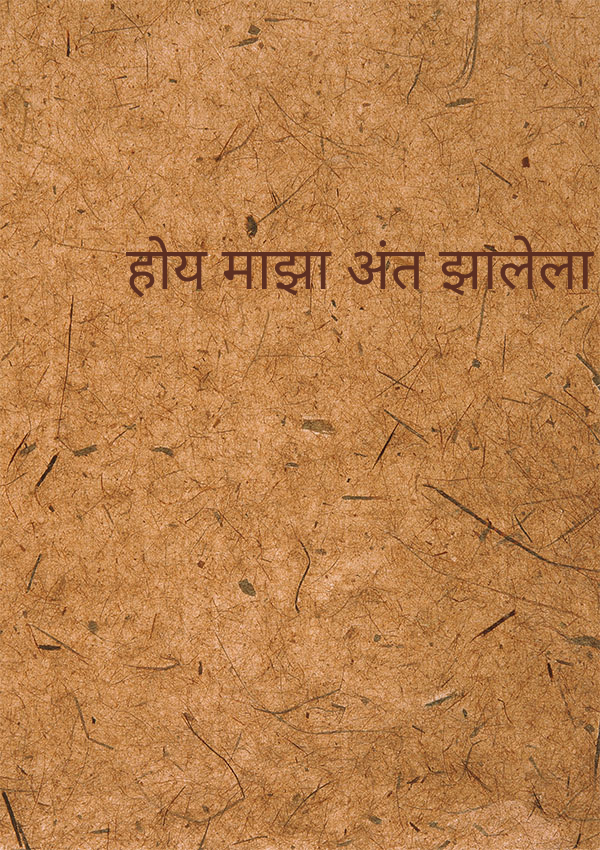 होय माझा अंत झालेला